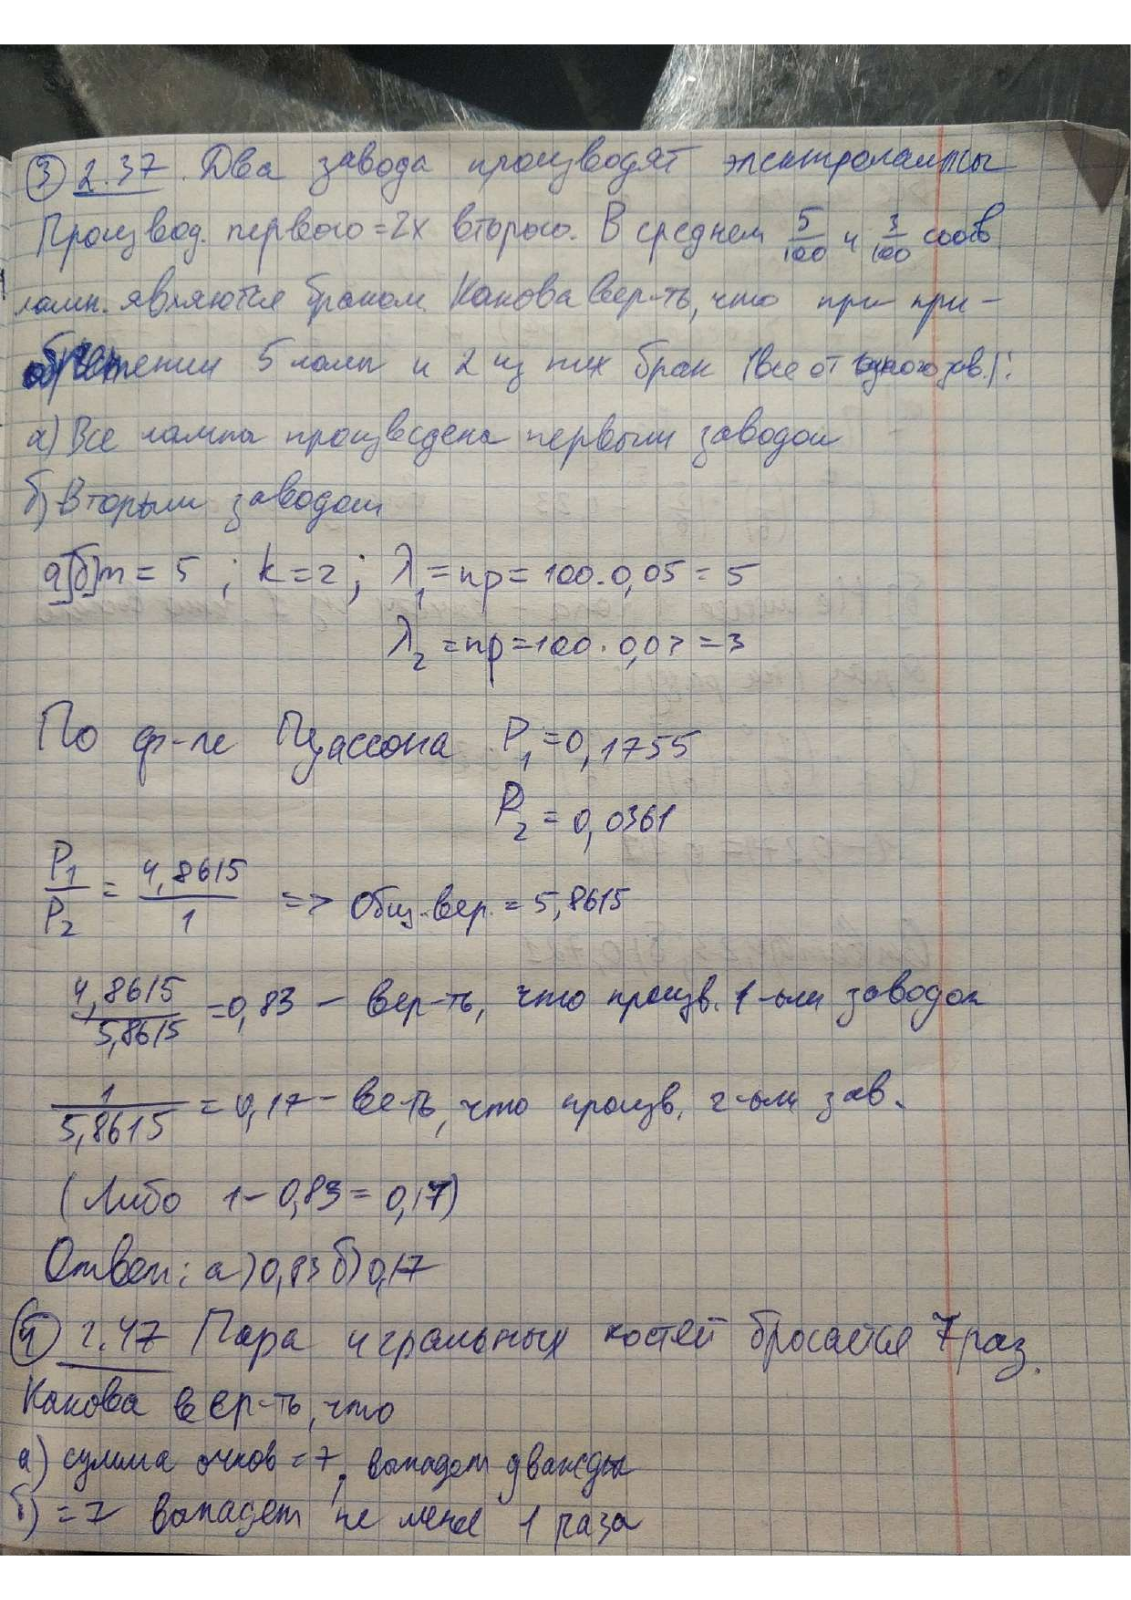 ③ 2.37. Два завода производят электролампы
Производ. первого = 2х второго. В среднем 5/100 и 3/100 соотв.
ламп. являются браком. Какова вер-ть, что при при-
обретении 5 ламп и 2 из них брак (все от одного зав.):
а) Все лампа произведена первым заводом
б) Вторым заводом
а)б) m = 5 ; k=2; λ₁ = np = 100·0,05 = 5
λ₂ = np = 100·0,03 = 3
По ф-ле Пуассона P₁ = 0,1755
P₂ = 0,0361
P₁/P₂ = 4,8615/1 => Общ. вер. = 5,8615
4,8615/5,8615 = 0,83 – вер-ть, что произв. 1-ым заводом
1/5,8615 = 0,17 – ве-ть, что произв. 2-ым зав.
(Либо 1 – 0,83 = 0,17)
Ответ: а) 0,83 б) 0,17
④ 2.47 Пара игральных костей бросается 7 раз.
Какова вер-ть, что
а) сумма очков = 7, выпадет дважды
б) = 7 выпадет не мене 1 раза